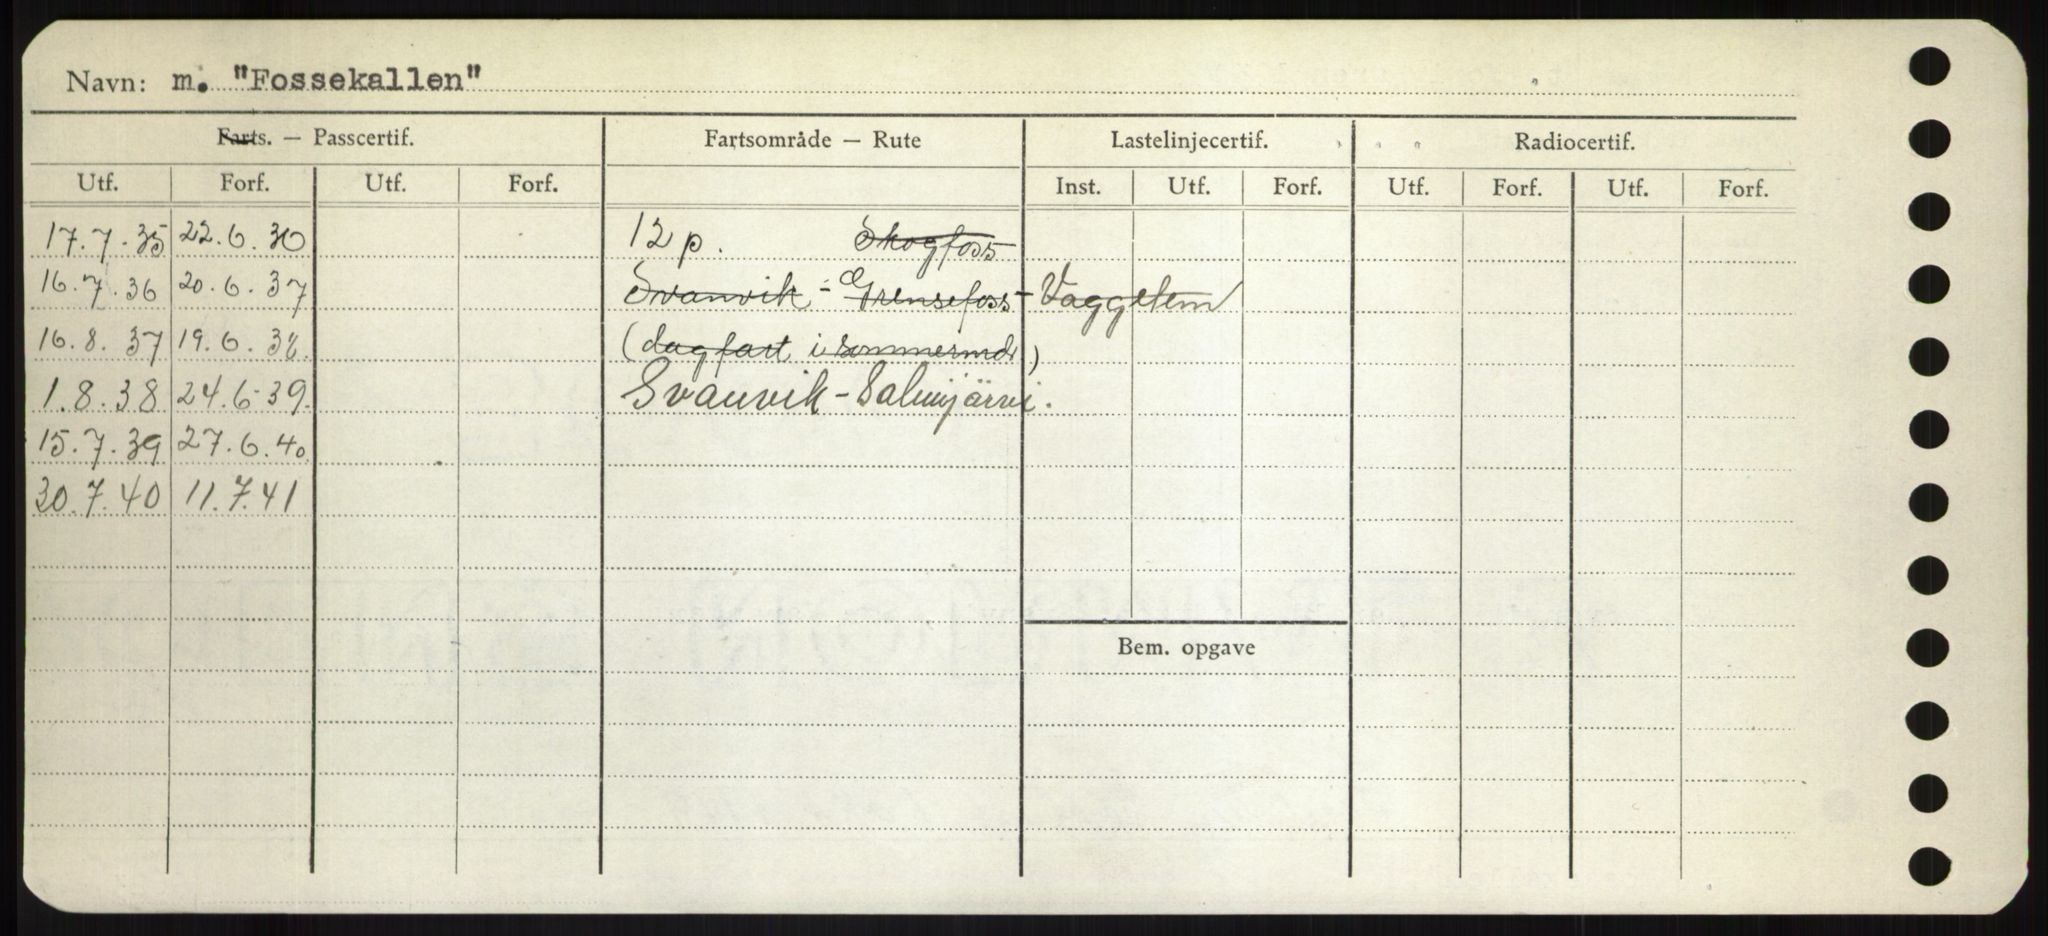 Navn: m. "Fossekallen"
Farts. — Passcertif. Fartsområde — Rute Lastelinjecertif. Radiocertif.
Utf. Forf. Utf. Forf. Inst. Utf. Forf. Utf. Forf. Utf. Forf.
17.7.35 22.6.36 12 p. Skogfoss
16.7.36 20.6.37 Svanvik - Grensefoss - Vaggetem
16.8.37 19.6.38. (dagfart i sommermdr)
1.8.38 24.6.39. Svanvik - Salmijärvi.
15.7.39 27.6.40.
30.7.40 11.7.41
Bem. opgave